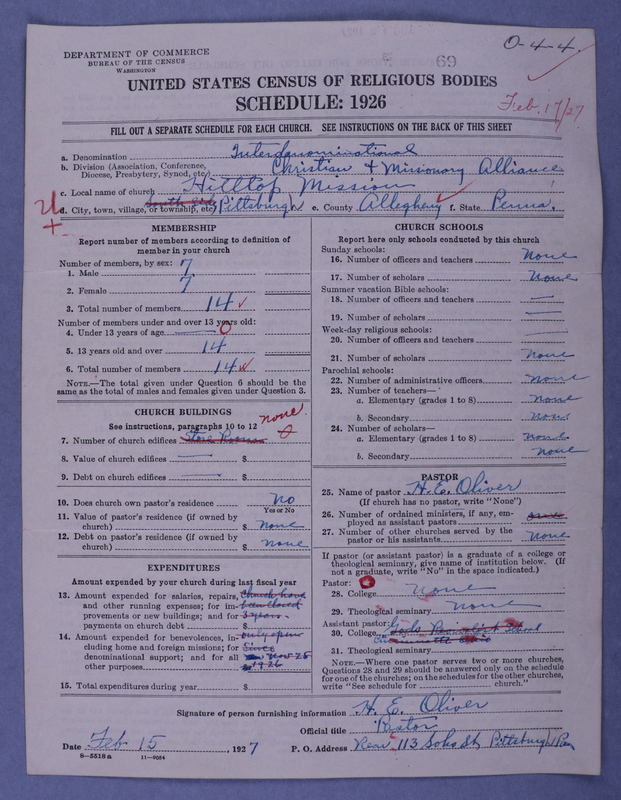 O-4-4.
69
DEPARTMENT OF COMMERCE
BUREAU OF THE CENSUS
WASHINGTON
UNITED STATES CENSUS OF RELIGIOUS BODIES
SCHEDULE: 1926
Feb. 17/27
FILL OUT A SEPARATE SCHEDULE FOR EACH CHURCH. SEE INSTRUCTIONS ON THE BACK OF THIS SHEET
a. Denomination Interdenominational
b. Division (Association, Conference, Diocese, Presbytery, Synod, etc) Christian + Missionary Alliance
c. Local name of church Hilltop Mission
d. City, town, village, or township, etc Pittsburgh e. County Allegheny f. State Penna.
MEMBERSHIP
Report number of members according to definition of
member in your church
Number of members, by sex:
1. Male 7
2. Female 7
3. Total number of members 14
Number of members under and over 13 years old:
4. Under 13 years of age 0
5. 13 years old and over 14
6. Total number of members 14
NOTE.—The total given under Question 6 should be the
same as the total of males and females given under Question 3.
CHURCH BUILDINGS
See instructions, paragraphs 10 to 12 none
7. Number of church edifices Store Room 0
8. Value of church edifices $
9. Debt on church edifices $
10. Does church own pastor's residence No
Yes or No
11. Value of pastor's residence (if owned by
church) $ None
12. Debt on pastor's residence (if owned by
church) $ None
EXPENDITURES
Amount expended by your church during last fiscal year
13. Amount expended for salaries, repairs, Church have
and other running expenses; for im- been closed
provements or new buildings; and for 3 years.
payments on church debt
14. Amount expended for benevolences, in- only open
cluding home and foreign missions; for Since
denominational support; and for all Nov 25
other purposes 1926
15. Total expenditures during year $
CHURCH SCHOOLS
Report here only schools conducted by this church
Sunday schools:
16. Number of officers and teachers None
17. Number of scholars None
Summer vacation Bible schools:
18. Number of officers and teachers —
19. Number of scholars —
Week-day religious schools:
20. Number of officers and teachers —
21. Number of scholars None
Parochial schools:
22. Number of administrative officers None
23. Number of teachers—
a. Elementary (grades 1 to 8) None
b. Secondary None
24. Number of scholars—
a. Elementary (grades 1 to 8) None
b. Secondary None
PASTOR
25. Name of pastor H. E. Oliver
(If church has no pastor, write "None")
26. Number of ordained ministers, if any, em-
ployed as assistant pastors
27. Number of other churches served by the
pastor or his assistants None
If pastor (or assistant pastor) is a graduate of a college or
theological seminary, give name of institution below. (If
not a graduate, write "No" in the space indicated.)
Pastor:
28. College None
29. Theological seminary None
Assistant pastor:
30. College Gods School
31. Theological seminary
NOTE.—Where one pastor serves two or more churches,
Questions 28 and 29 should be answered only on the schedule
for one of the churches; on the schedules for the other churches,
write "See schedule for church."
Signature of person furnishing information H. E. Oliver
Official title Pastor
Date Feb 15, 1927 P. O. Address Rear 113 Soho St Pittsburgh Pa
8-5518a 11-9054